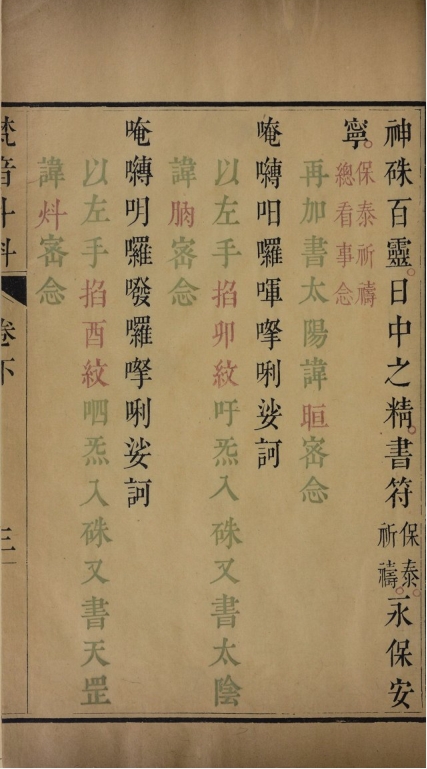 神硃百靈日中之精書符保泰祈禱永保安
寧保泰祈禱總看事念
再加書太陽諱晅密念
唵囀呬囉喗𭉨唎娑訶
以左手掐卯紋吁炁入硃又書太陰
諱朒密念
唵囀明囉㗶囉𭉨唎娑訶
以左手掐酉紋呬炁入硃又書天罡
諱炓密念
梵音斗科 卷下 三